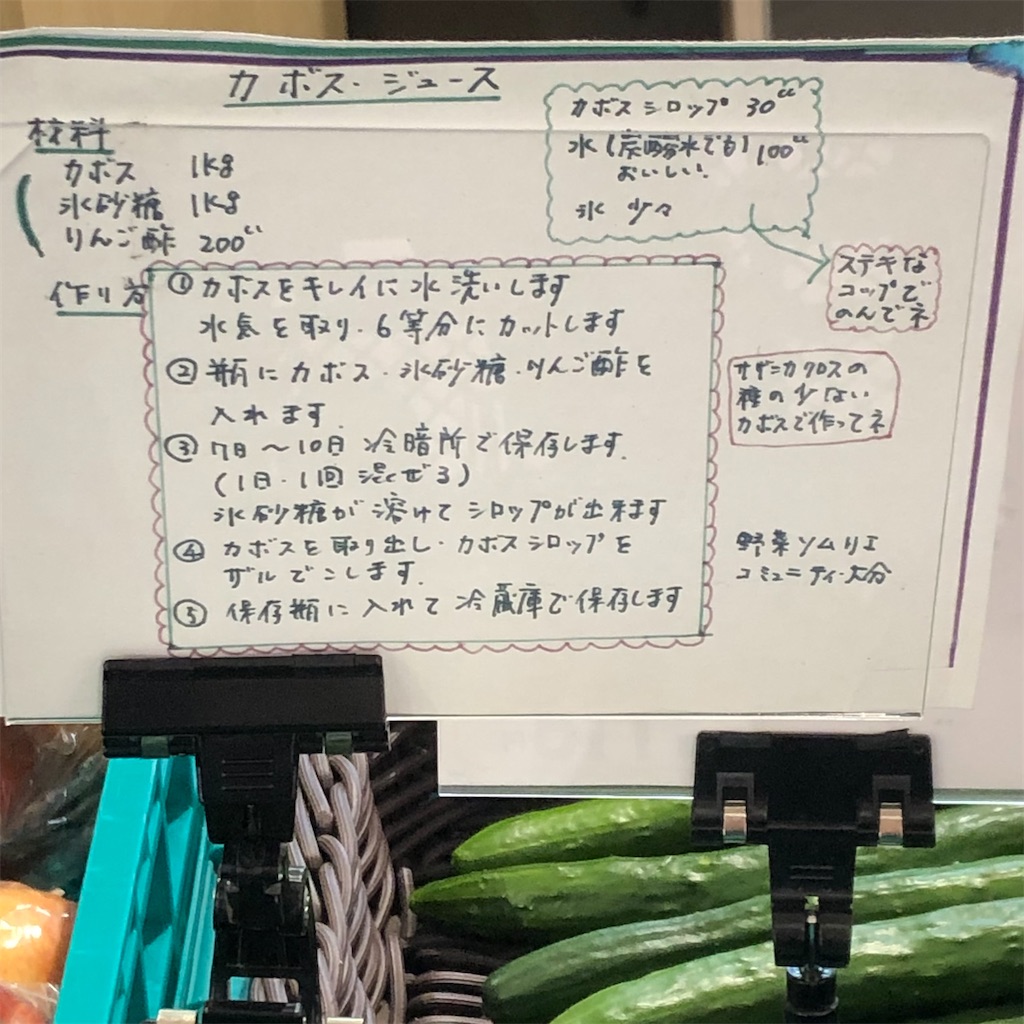 カボス・ジュース
材料
カボス 1kg
氷砂糖 1kg
りんご酢 200cc
カボスシロップ 30cc
水(炭酸水でも) 100cc
おいしい.
氷 少々
ステキな
コップで
のんでネ
作り方
① カボスをキレイに水洗いします
水気を取り・6等分にカットします
② 瓶にカボス・氷砂糖・りんご酢を
入れます.
③ 7日～10日 冷暗所で保存します.
(1日・1回 混ぜる)
氷砂糖が溶けてシロップが出来ます
④ カボスを取り出し・カボスシロップを
ザルでこします.
⑤ 保存瓶に入れて冷蔵庫で保存します
の
種の少ない
カボスで作ってネ
野菜ソムリエ
コミュニティ・大分